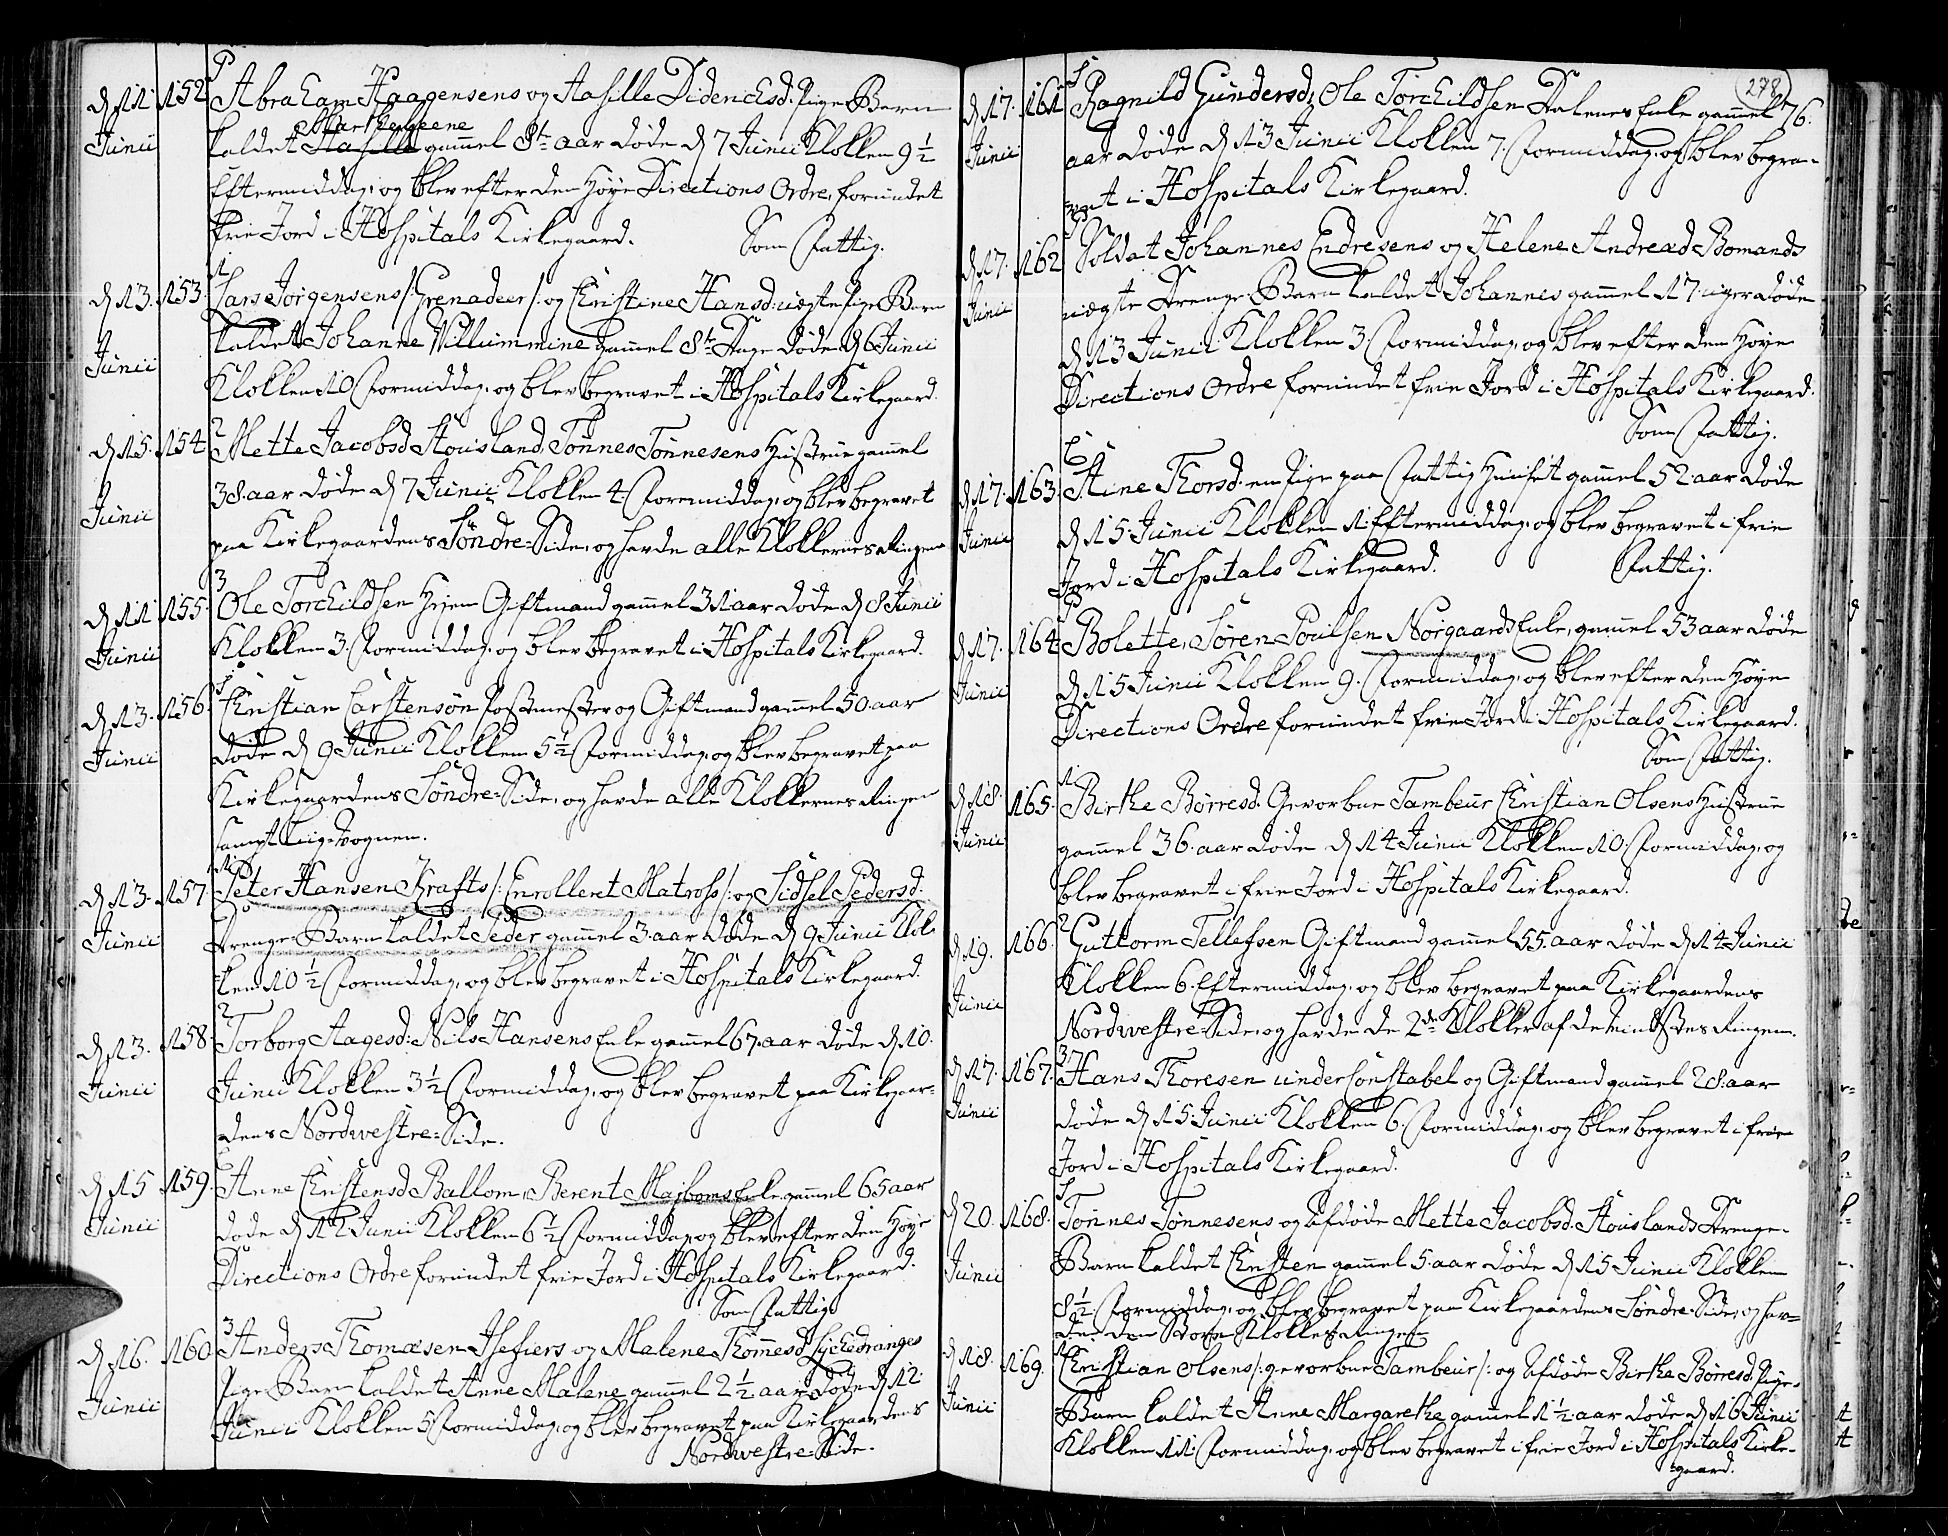 d 11 Junii 152 Abraham Haagensens og Aasille Didenchsd: Pige-Barn
kaldet Marthe Leene gamel 8te aar døde d 7 Junii Klokken 9 1/2
Eftermiddag, og blev efter den Høye Directions Ordre, forundet
frie Jord i Hospitals Kirkegaard. Som Fattig.
d 13. Junii 153. Lars Jorgensens /: Grenadeer :/ og Christine Hansd: uægte Pige Barn
kaldet Johanne Villummine gamel 8te Dage døde d 6 Junii
Klokken 10 Formiddag, og blev begravet i Hospitals Kirkegaard.
d 15. Junii 154 Mette Jacobsd Stousland, Tønnes Tønnesens Hustrue gamel
38. aar døde d 7 Junii Klokken 4. Formiddag, og blev begravet
paa Kirkegaardens Søndre-Side, og havde alle Klokkernes Ringen
d 11 Junii 155. Ole Torchildsen Hejem Giftmand gamel 31 aar døde d 8 Junii
Klokken 3. Formiddag, og blev begravet i Hospitals Kirkegaard.
d 13. Junii 156 Christian Carstensøn Postmester og Giftmand gamel 50. aar
døde d 9 Junii Klokken 5 1/2 Formiddag, og blev begravet paa
Kirkegaardens Søndre-Side, og havde alle Klokkernes Ringen
sampt Liig-Vognen.
d 13. Junii 157. Peter Hansen Krafts /: Enrolleret Matross :/ og Sidsel Pedersd:
Drenge-Barn kaldet Peder gamel 3 aar døde d 9 Junii Klok-
ken 10 1/2 Formiddag, og blev begravet i Hospitals Kirkegaard.
d 13. Junii 158 Torborg Aagesd: Nils Hansens Enke gamel 67. aar døde d 10.
Junii Klokken 3 1/2 Formiddag, og blev begravet paa Kirkegaar-
dens Nordvestre-Side.
d 15 Junii 159. Anne Christensd Ballom, Berent Majboms Enke gamel 65 aar
døde d 12 Junii Klokken 6 1/2 Formiddag, og blev efter den Høye
Directions Ordre forundet frie Jord i Hospitals Kirkegaard.
Som Fattig
d 16. Junii 160 Anders Thomæsen og Malene Tømmesd
Pige-Barn kaldet Anne Malene gamel 2 1/2 aar døde d 12.
Junii Klokken 5 Formiddag, og blev begravet paa Kirkegaardens
Nordvestre-Side.
278
d 17. Junii 161 Ragnild Gundersd, Ole Torchildsen Dalenes Enke gamel 76.
aar døde d 13 Junii Klokken 7. Formiddag, og blev begra-
vet i Hospitals Kirkegaard.
d 17. Junii 162 Soldat Johannes Endresens og Helene Andreæd Bomands
uægte Drenge-Barn kaldet Johannes gamel 17. uger døde
d 13 Junii Klokken 3. Formiddag, og blev efter den Høye
Directions Ordre forundet frie Jord i Hospitals Kirkegaard.
Som Fattig.
d 17. Junii 163. Stine Thorsd. en Pige paa Fattig Huuset gamel 52 aar døde
d 15. Junii Klokken 1 Eftermiddag, og blev begravet i frie
Jord i Hospitals Kirkegaard. Fattig.
d 17. Junii 164 Bolette, Søren Poulsen Norgaards Enke, gamel 53 aar døde
d 15 Junii Klokken 9. Formiddag, og blev efter den Høye
Directions Ordre forundet frie Jord i Hospitals Kirkegaard.
Som Fattig.
d 18. Junii 165. Birthe Børresd. Gevorbne Tambeur Christian Olsens Hustrue
gamel 36. aar døde d 14 Junii Klokken 10. Formiddag, og
blev begravet i frie Jord i Hospitals Kirkegaard.
d 19. Junii 166. Guttorm Tellefsen Giftmand gamel 55. aar døde d 14 Junii
Klokken 6. Eftermiddag, og blev begravet paa Kirkegaardens
Nordvestre-Side, og havde de 2de Klokker af de mindstes Ringen.
d 17. Junii 167. Hans Thoresen underConstabel og Giftmand gamel 28. aar
døde d 15. Junii Klokken 6. Formiddag, og blev begravet i frie
Jord i Hospitals Kirkegaard.
d 20. Junii 168. Tønnes Tønnesens og Afdøde Mette Jacobsd. Stouslands Drenge-
Barn kaldet Christen gamel 5. aar døde d 15 Junii Klokken
8 1/2. Formiddag, og blev begravet paa Kirkegaardens Søndre-Side, og hav-
de den Klokkes Ringen
d 18. Junii 169. Christian Olsens /: gevorbne Tambeur :/ og Afdøde Birthe Børresd. Pige-
Barn kaldet Anne Margarethe gamel 1 1/2 aar døde d 16 Junii
Klokken 11. Formiddag, og blev begravet i frie Jord i Hospitals Kirke-
gaard.